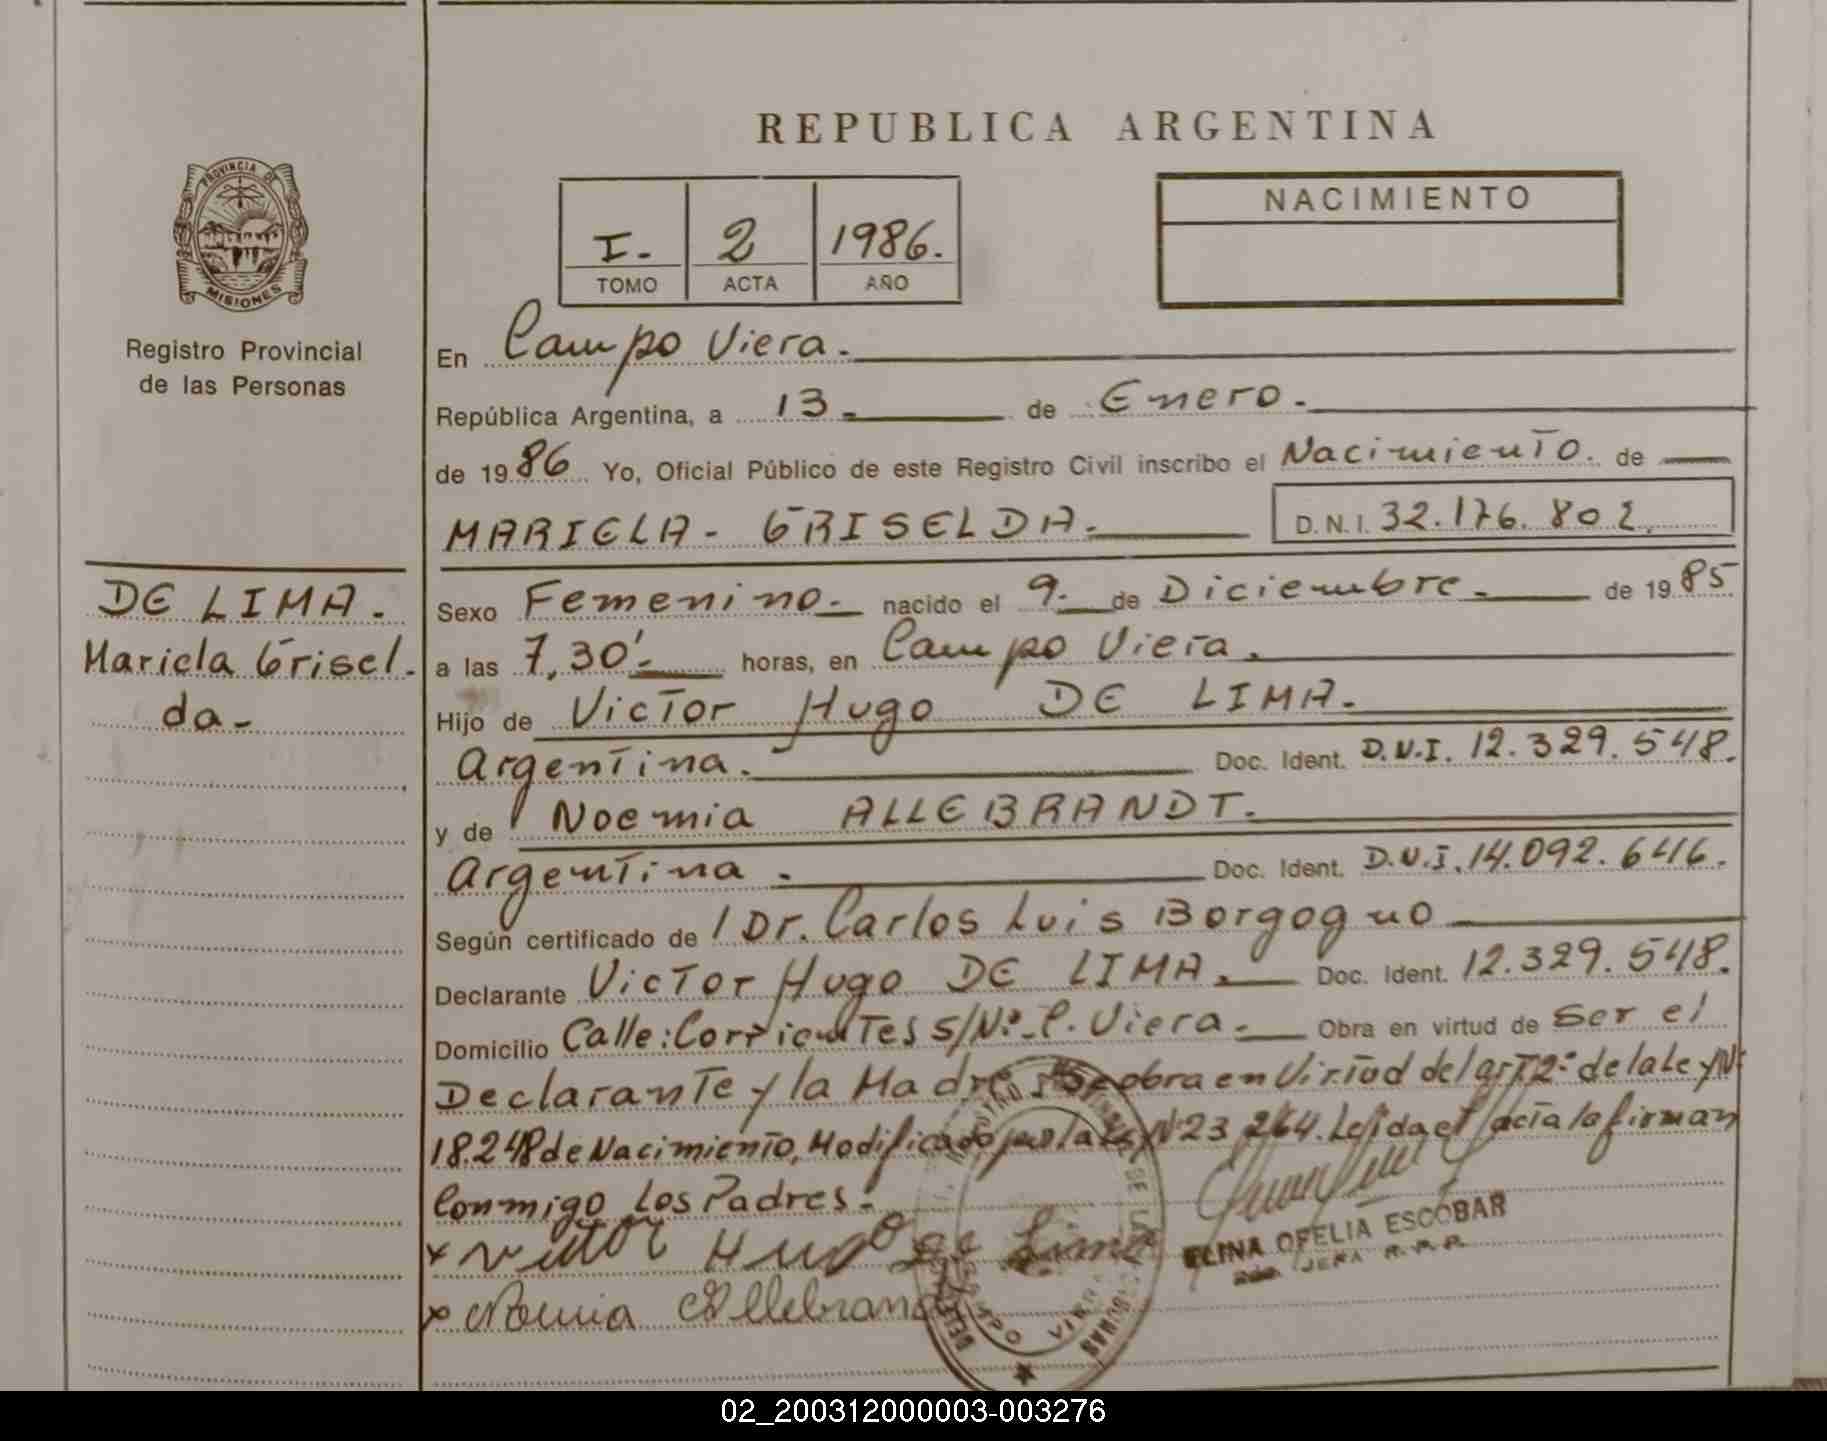 REPUBLICA ARGENTINA
PROVINCIA DE
MISIONES
Registro Provincial
de las Personas
I.- 2 1986.
TOMO ACTA AÑO
NACIMIENTO
En Campo Viera.
República Argentina, a 13 - de Enero.
de 1986 Yo, Oficial Público de este Registro Civil inscribo el Nacimiento. de
MARIELA - GRISELDA. D.N.I. 32.176.802.
DE LIMA.
Mariela Grisel-
da-
Sexo Femenino. nacido el 9. de Diciembre. de 1985
a las 7,30'- horas, en Campo Viera.
Hijo de Victor Hugo DE LIMA.
Argentina. Doc. Ident. D.N.I. 12.329.548.
y de Noemia ALLEBRANDT.
Argentina. Doc. Ident. D.N.I. 14.092.646.
Según certificado de / Dr. Carlos Luis Borgogno
Declarante Victor Hugo DE LIMA. Doc. Ident. 12.329.548.
Domicilio Calle: Corrientes S/Nº. C. Viera. Obra en virtud de Ser el
Declarante y la Madre Se obra en Virtud del art 2º de la Ley Nº
18.248 de Nacimiento, Modificado por la Ley Nº 23 264. Leida el acta la firman
Conmigo Los Padres.
x Victor Hugo de Lima
x Noemia Allebrand
ELINA OFELIA ESCOBAR
JEFA R.P.P.
02_200312000003-003276